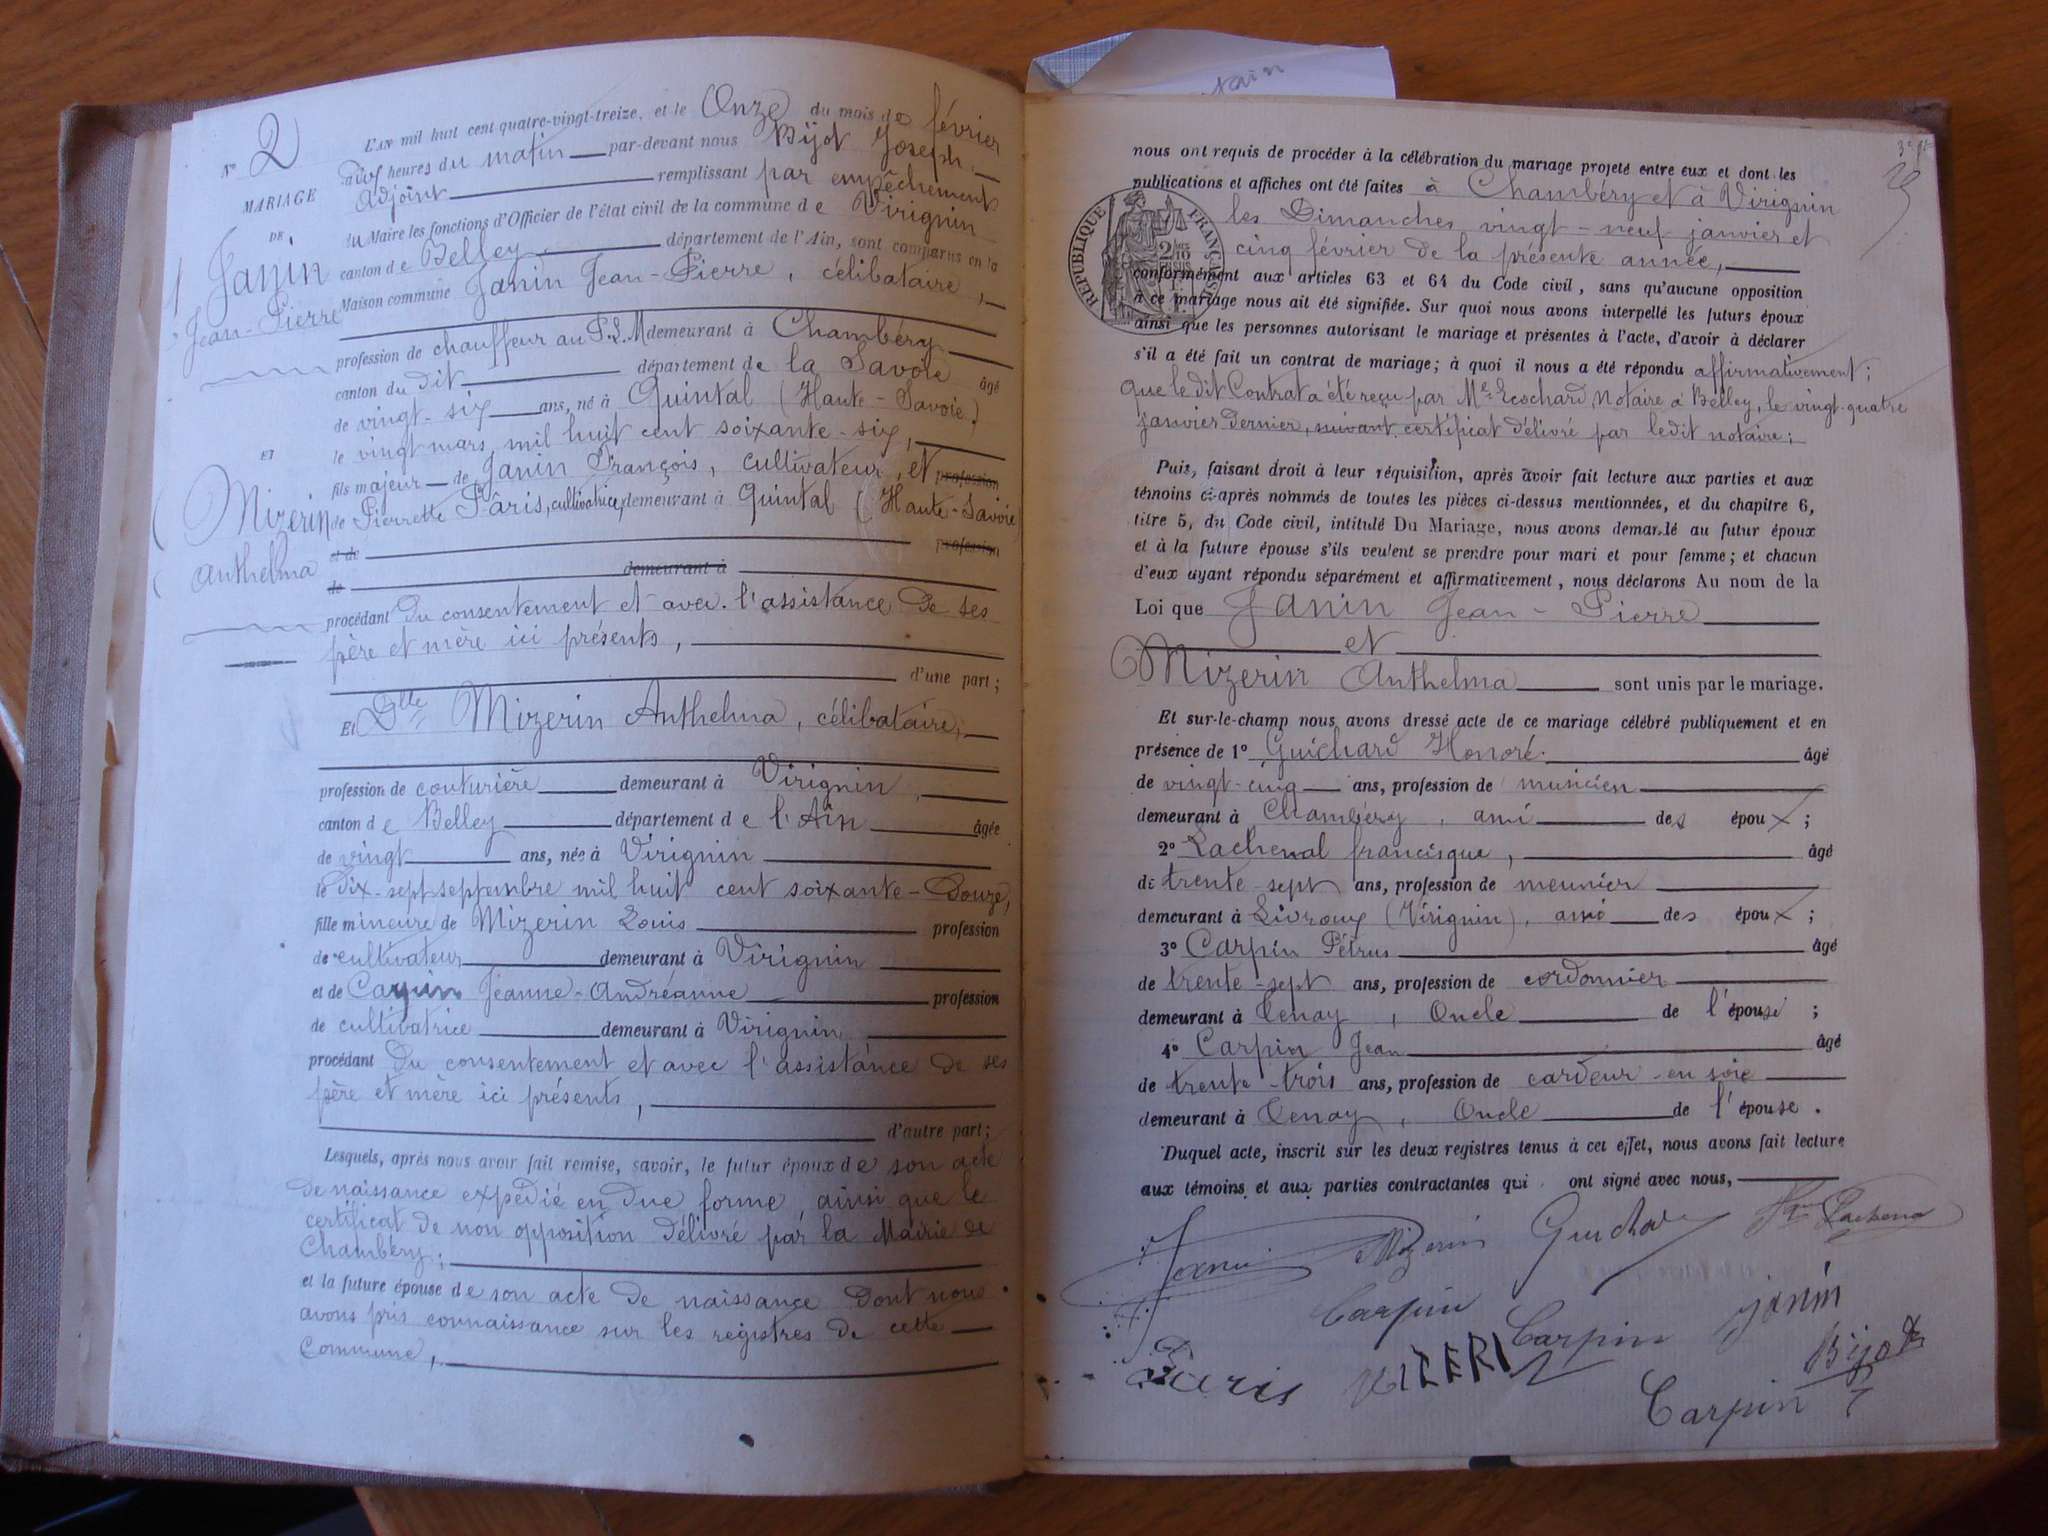 tain
N° 2
MARIAGE
DE
Janin
Jean-Pierre
ET
Mizerin
Anthelma
L'AN mil huit cent quatre-vingt-treize, et le Onze du mois de février
heures du matin par-devant nous Bijot Joseph,
adjoint remplissant par empêchement
du Maire les fonctions d'Officier de l'état civil de la commune de Virignin
canton de Belley, département de l'Ain, sont comparus en la
Maison commune Janin Jean-Pierre, célibataire,
profession de chauffeur au P.L.M demeurant à Chambéry
canton du dit département de la Savoie âgé
de vingt-six ans, né à Quintal (Haute-Savoie)
le vingt mars mil huit cent soixante-six,
fils majeur de Janin François, cultivateur, et profession
de Pierrette Pâris, cultivatrice, demeurant à Quintal (Haute-Savoie)
et de profession
de demeurant à
procédant du consentement et avec l'assistance de ses
père et mère ici présents,
d'une part;
Et Dlle Mizerin Anthelma, célibataire,
profession de couturière demeurant à Virignin,
canton de Belley département de l'Ain âgée
de vingt ans, née à Virignin
le dix-sept septembre mil huit cent soixante-douze,
fille mineure de Mizerin Louis profession
de cultivateur demeurant à Virignin
et de Carpin Jeanne-Andréanne profession
de cultivatrice demeurant à Virignin
procédant du consentement et avec l'assistance de ses
père et mère ici présents,
d'autre part;
Lesquels, après nous avoir fait remise, savoir, le futur époux de son acte
de naissance expédié en due forme, ainsi que le
certificat de non opposition délivré par la Mairie de
Chambéry;
et la future épouse de son acte de naissance dont nous
avons pris connaissance sur les registres de cette
Commune,
nous ont requis de procéder à la célébration du mariage projeté entre eux et dont les
publications et affiches ont été faites à Chambéry et à Virignin
les Dimanches vingt-neuf janvier et
cinq février de la présente année,
RÉPUBLIQUE FRANÇAISE
2/10
conformément aux articles 63 et 64 du Code civil, sans qu'aucune opposition
à ce mariage nous ait été signifiée. Sur quoi nous avons interpellé les futurs époux
ainsi que les personnes autorisant le mariage et présentes à l'acte, d'avoir à déclarer
s'il a été fait un contrat de mariage; à quoi il nous a été répondu affirmativement;
que le dit Contrat a été reçu par Me Ecochard Notaire à Belley, le vingt-quatre
janvier dernier, suivant certificat délivré par ledit notaire;
Puis, faisant droit à leur réquisition, après avoir fait lecture aux parties et aux
témoins ci-après nommés de toutes les pièces ci-dessus mentionnées, et du chapitre 6,
titre 5, du Code civil, intitulé Du Mariage, nous avons demandé au futur époux
et à la future épouse s'ils veulent se prendre pour mari et pour femme; et chacun
d'eux ayant répondu séparément et affirmativement, nous déclarons Au nom de la
Loi que Janin Jean-Pierre
et
Mizerin Anthelma sont unis par le mariage.
Et sur-le-champ nous avons dressé acte de ce mariage célébré publiquement et en
présence de 1° Guichard Honoré âgé
de vingt-cinq ans, profession de musicien
demeurant à Chambéry, ami des époux;
2° Lachenal francisque, âgé
de trente-sept ans, profession de meunier
demeurant à Livroux (Virignin), ami des époux;
3° Carpin Pétrus âgé
de trente-sept ans, profession de cordonnier
demeurant à Tenay, Oncle de l'épouse;
4° Carpin Jean âgé
de trente-trois ans, profession de cardeur en soie
demeurant à Tenay, Oncle de l'épouse.
Duquel acte, inscrit sur les deux registres tenus à cet effet, nous avons fait lecture
aux témoins et aux parties contractantes qui ont signé avec nous,
Janin Mizerin Guichard Lachenal
Carpin Carpin Janin
Paris MIZERIN Bijot
Carpin